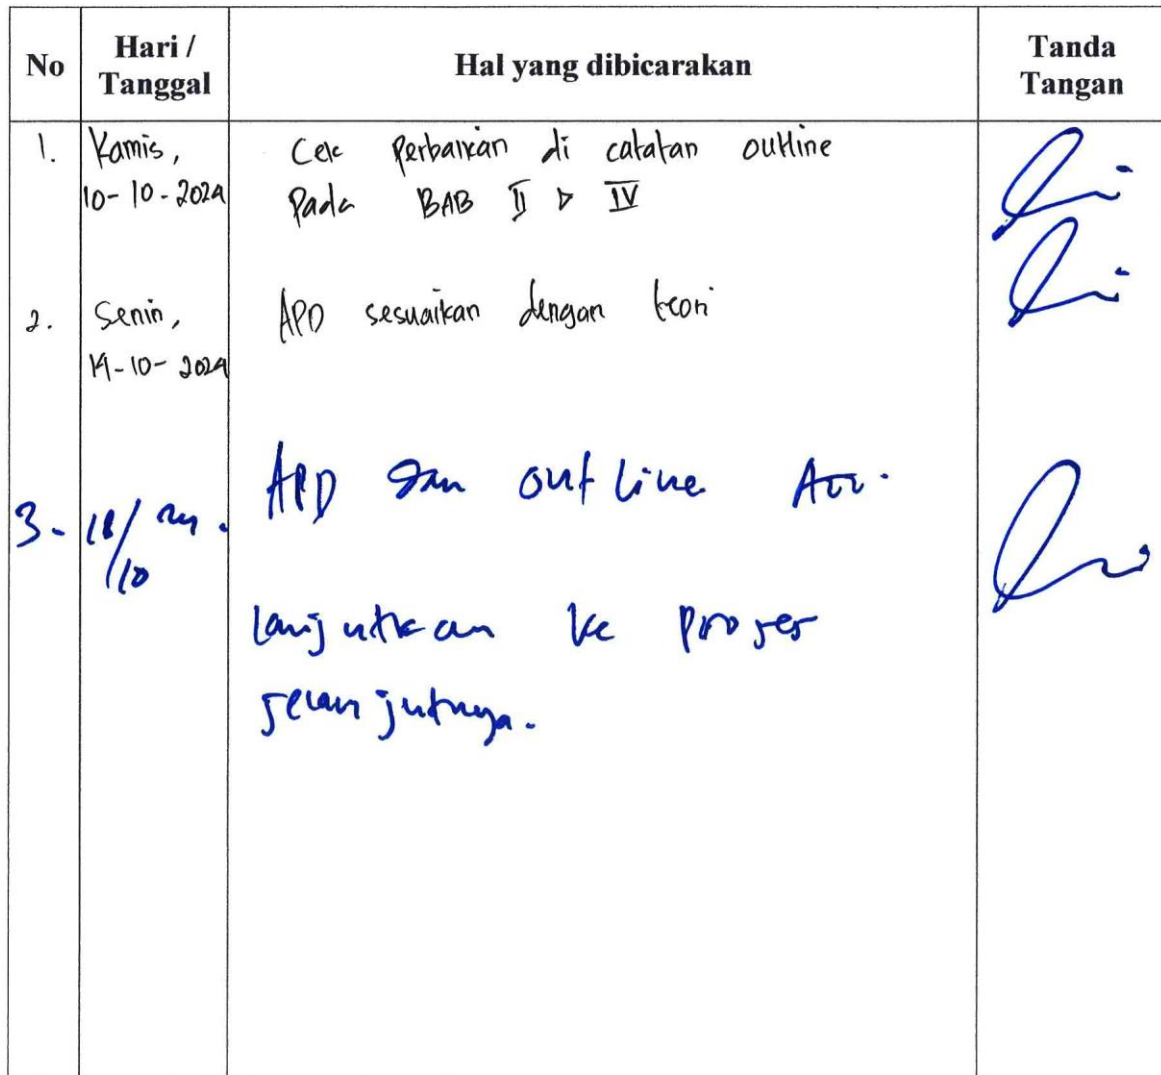 No
Hari /
Tanggal
Hal yang dibicarakan
Tanda
Tangan
1. Kamis,
10-10-2024
Cek Perbaikan di catatan outline
Pada BAB II & IV
2. Senin,
14-10-2024
APD sesuaikan dengan teori
3. 18/10 24.
APD dan outline Acc.
lanjutkan ke proses
selanjutnya.